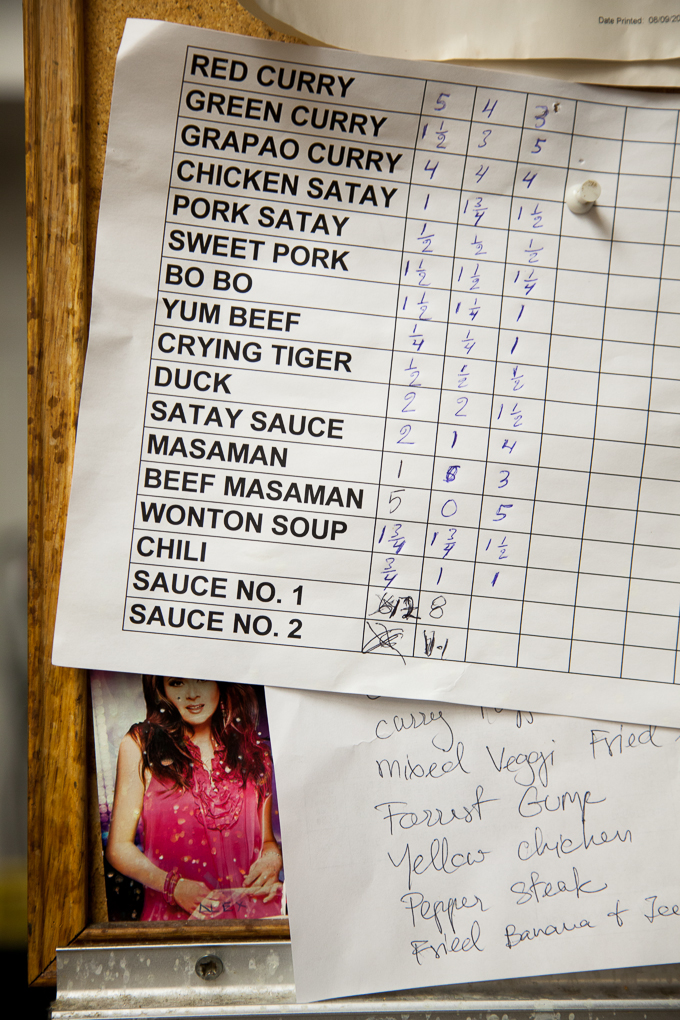 Date Printed: 08/09/20
RED CURRY 5 4 3
GREEN CURRY 1 1/2 3 5
GRAPAO CURRY 4 4 4
CHICKEN SATAY 1 1 3/4 1 1/2
PORK SATAY 1/2 1/2 1/2
SWEET PORK 1 1/2 1 1/2 1 1/4
BO BO 1 1/2 1 1/4 1
YUM BEEF 1/4 1/4 1
CRYING TIGER 1/2 1/2 1/2
DUCK 2 2 1 1/2
SATAY SAUCE 2 1 4
MASAMAN 1 3
BEEF MASAMAN 5 0 5
WONTON SOUP 1 3/4 1 3/4 1 1/2
CHILI 3/4 1 1
SAUCE NO. 1 12 8
SAUCE NO. 2
curry
mixed Veggi Fried
Forrest Gump
Yellow chicken
Pepper steak
Fried Banana +